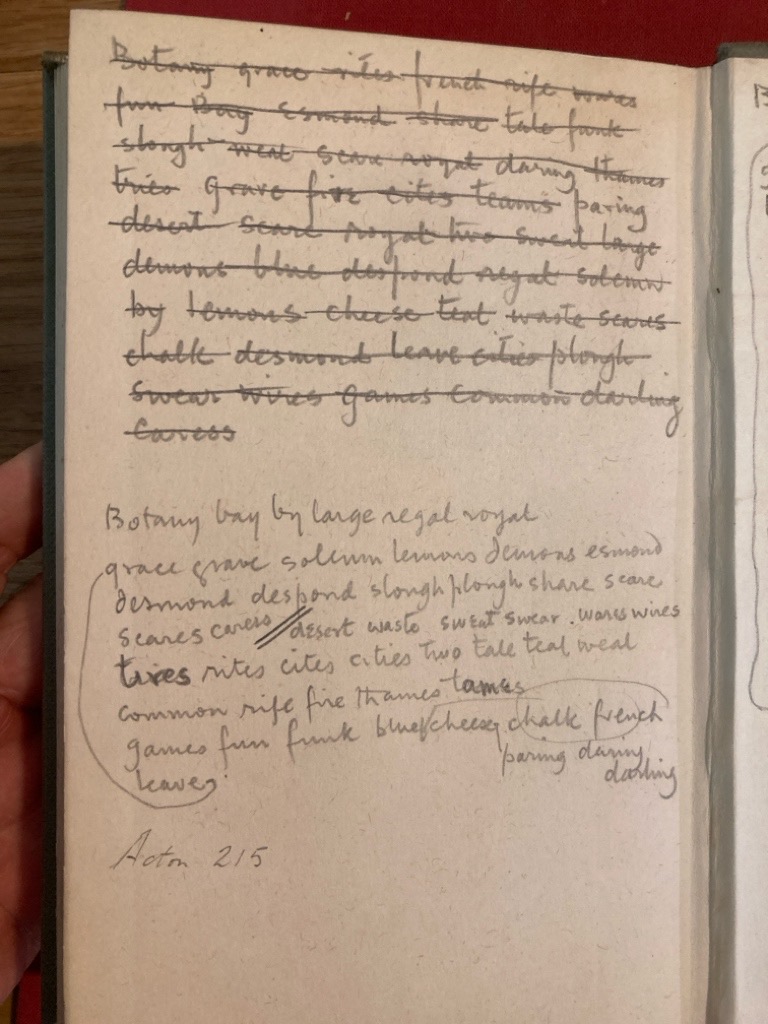 Botany grace rites french rife wares
fun Bay Esmond share tale funk
slough weal scare royal daring thames
tries grave five cites teams paring
desert scare royal two sweat large
demons blue despond regal solemn
by lemons cheese teal waste scares
chalk desmond leave cities plough
swear wires games common darling
caress
Botany bay by large regal royal
grace grave solemn lemons demons esmond
desmond despond slough plough share scare
scares caress // desert waste sweat swear. wares wires
tires rites cites cities two tale teal weal
common rife fire thames tames
games fun funk blue cheese chalk french
leave paring daring
darling
Acton 215
B